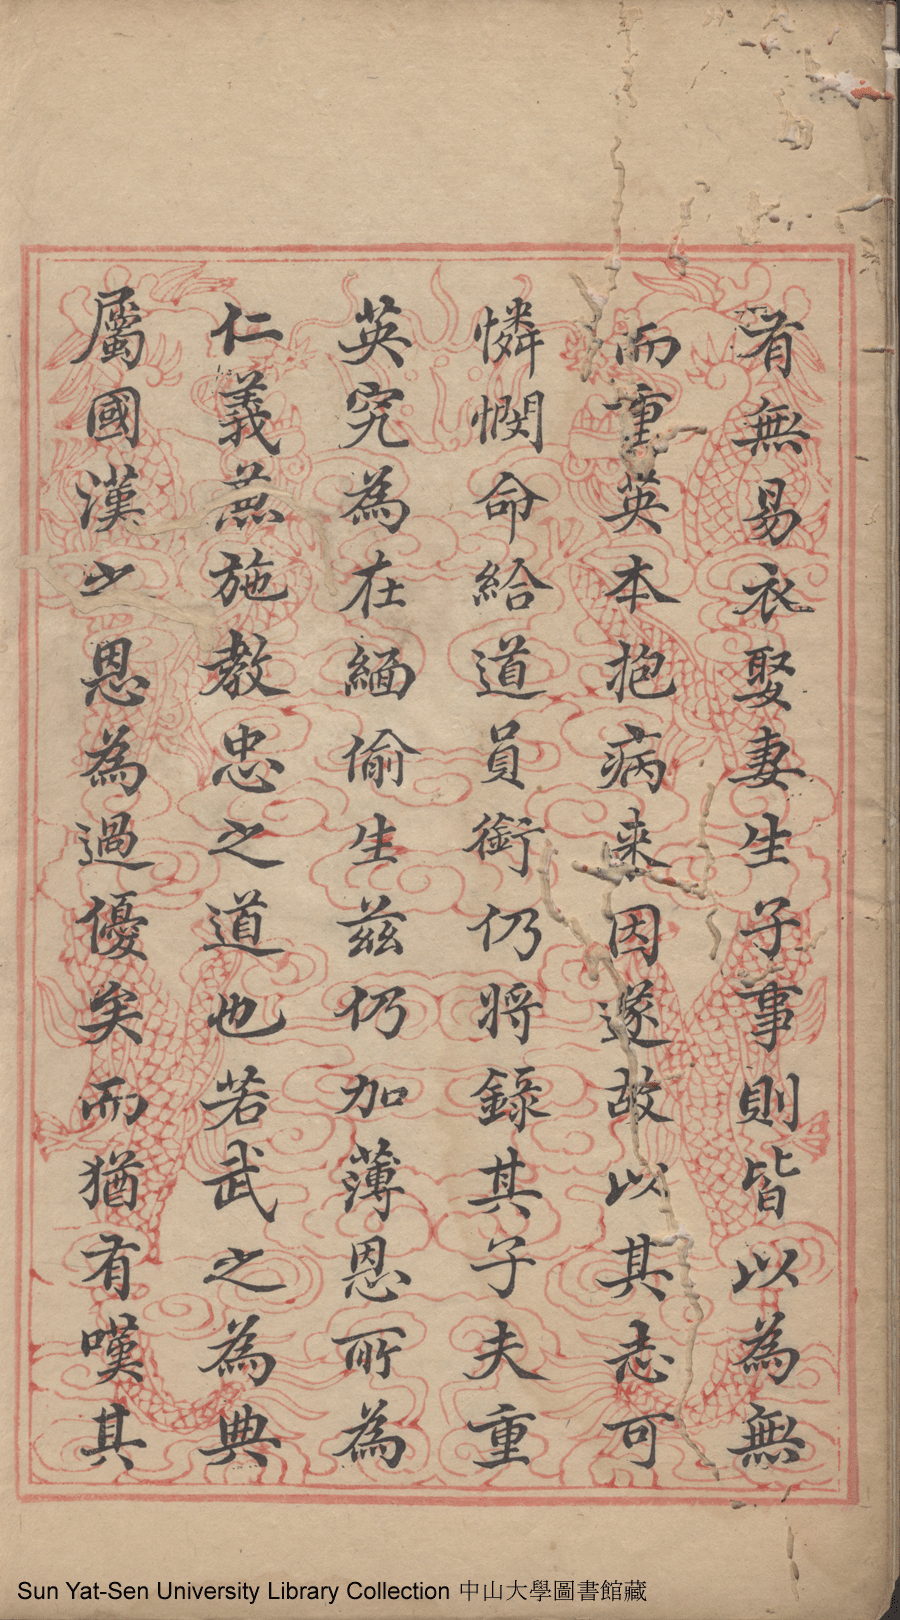 有無易衣娶妻生子事則皆以為無
而重英本抱病来因遂故以其志可
憐憫命給道員銜仍將錄其子夫重
英究為在緬偷生茲仍加薄恩所為
仁義並施教忠之道也若武之為典
屬國漢之恩為過優矣而猶有嘆其
Sun Yat-Sen University Library Collection 中山大學圖書館藏